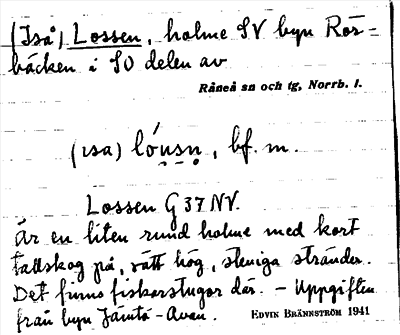 (Iså) Lossen, holme SV byn Rör=
bäcken i SO delen av
Råneå sn och tg, Norrb. l.
(ɩsa) lóusn, bf. m.
Lossen G 37 NV.
Är en liten rund holme med kort
tallskog på, rätt hög, steniga stränder.
Det finns fiskarstugor där. – Uppgiften
från byn Jämtö-Avan. EDVIN BRÄNNSTRÖM 1941